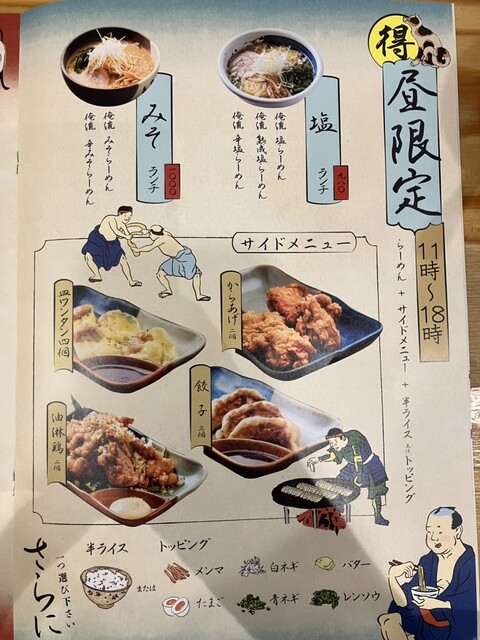 得
昼限定
11時〜18時
らーめん + サイドメニュー + 半ライス または トッピング
塩
ランチ
九八〇
俺流 塩らーめん
俺流 熟成塩らーめん
俺流 辛塩らーめん
みそ
ランチ
一〇〇〇
俺流 みそらーめん
俺流 辛みそらーめん
サイドメニュー
からあげ 二個
皿ワンタン四個
餃子 三個
油淋鶏 二個
さらに
一つ選び下さい
半ライス
または
トッピング
メンマ
白ネギ
バター
たまご
青ネギ
レンソウ